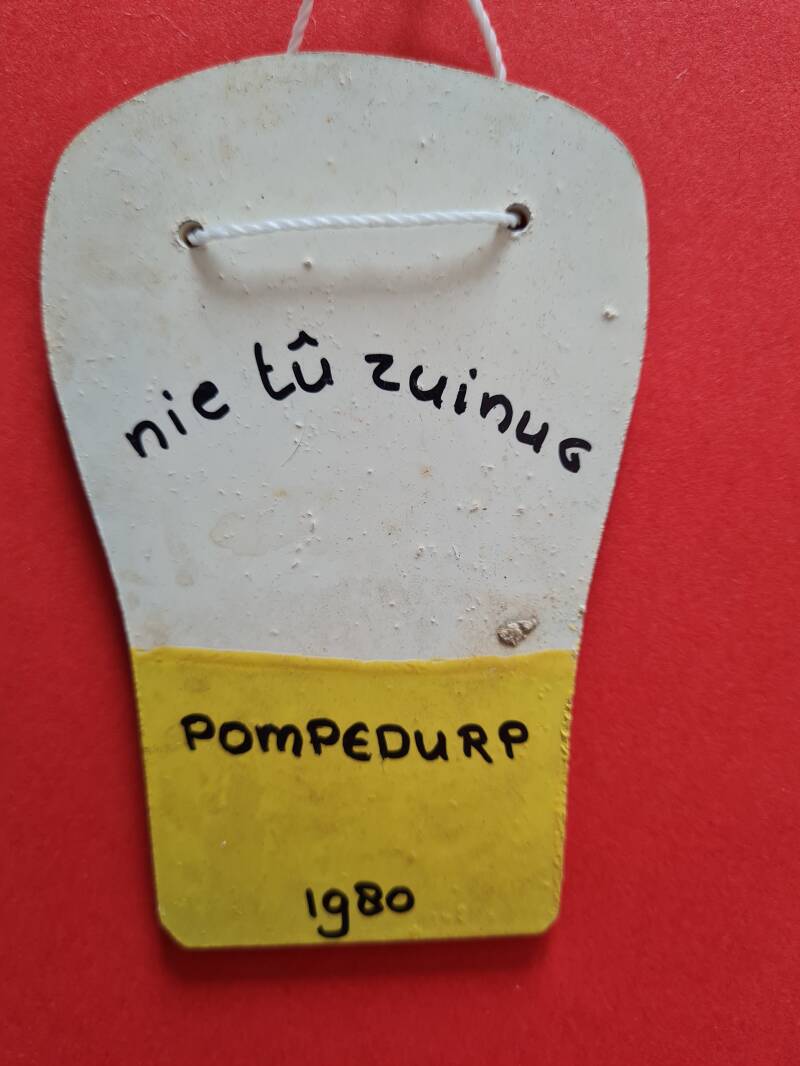 nie tû zuinug
POMPEDURP
1980